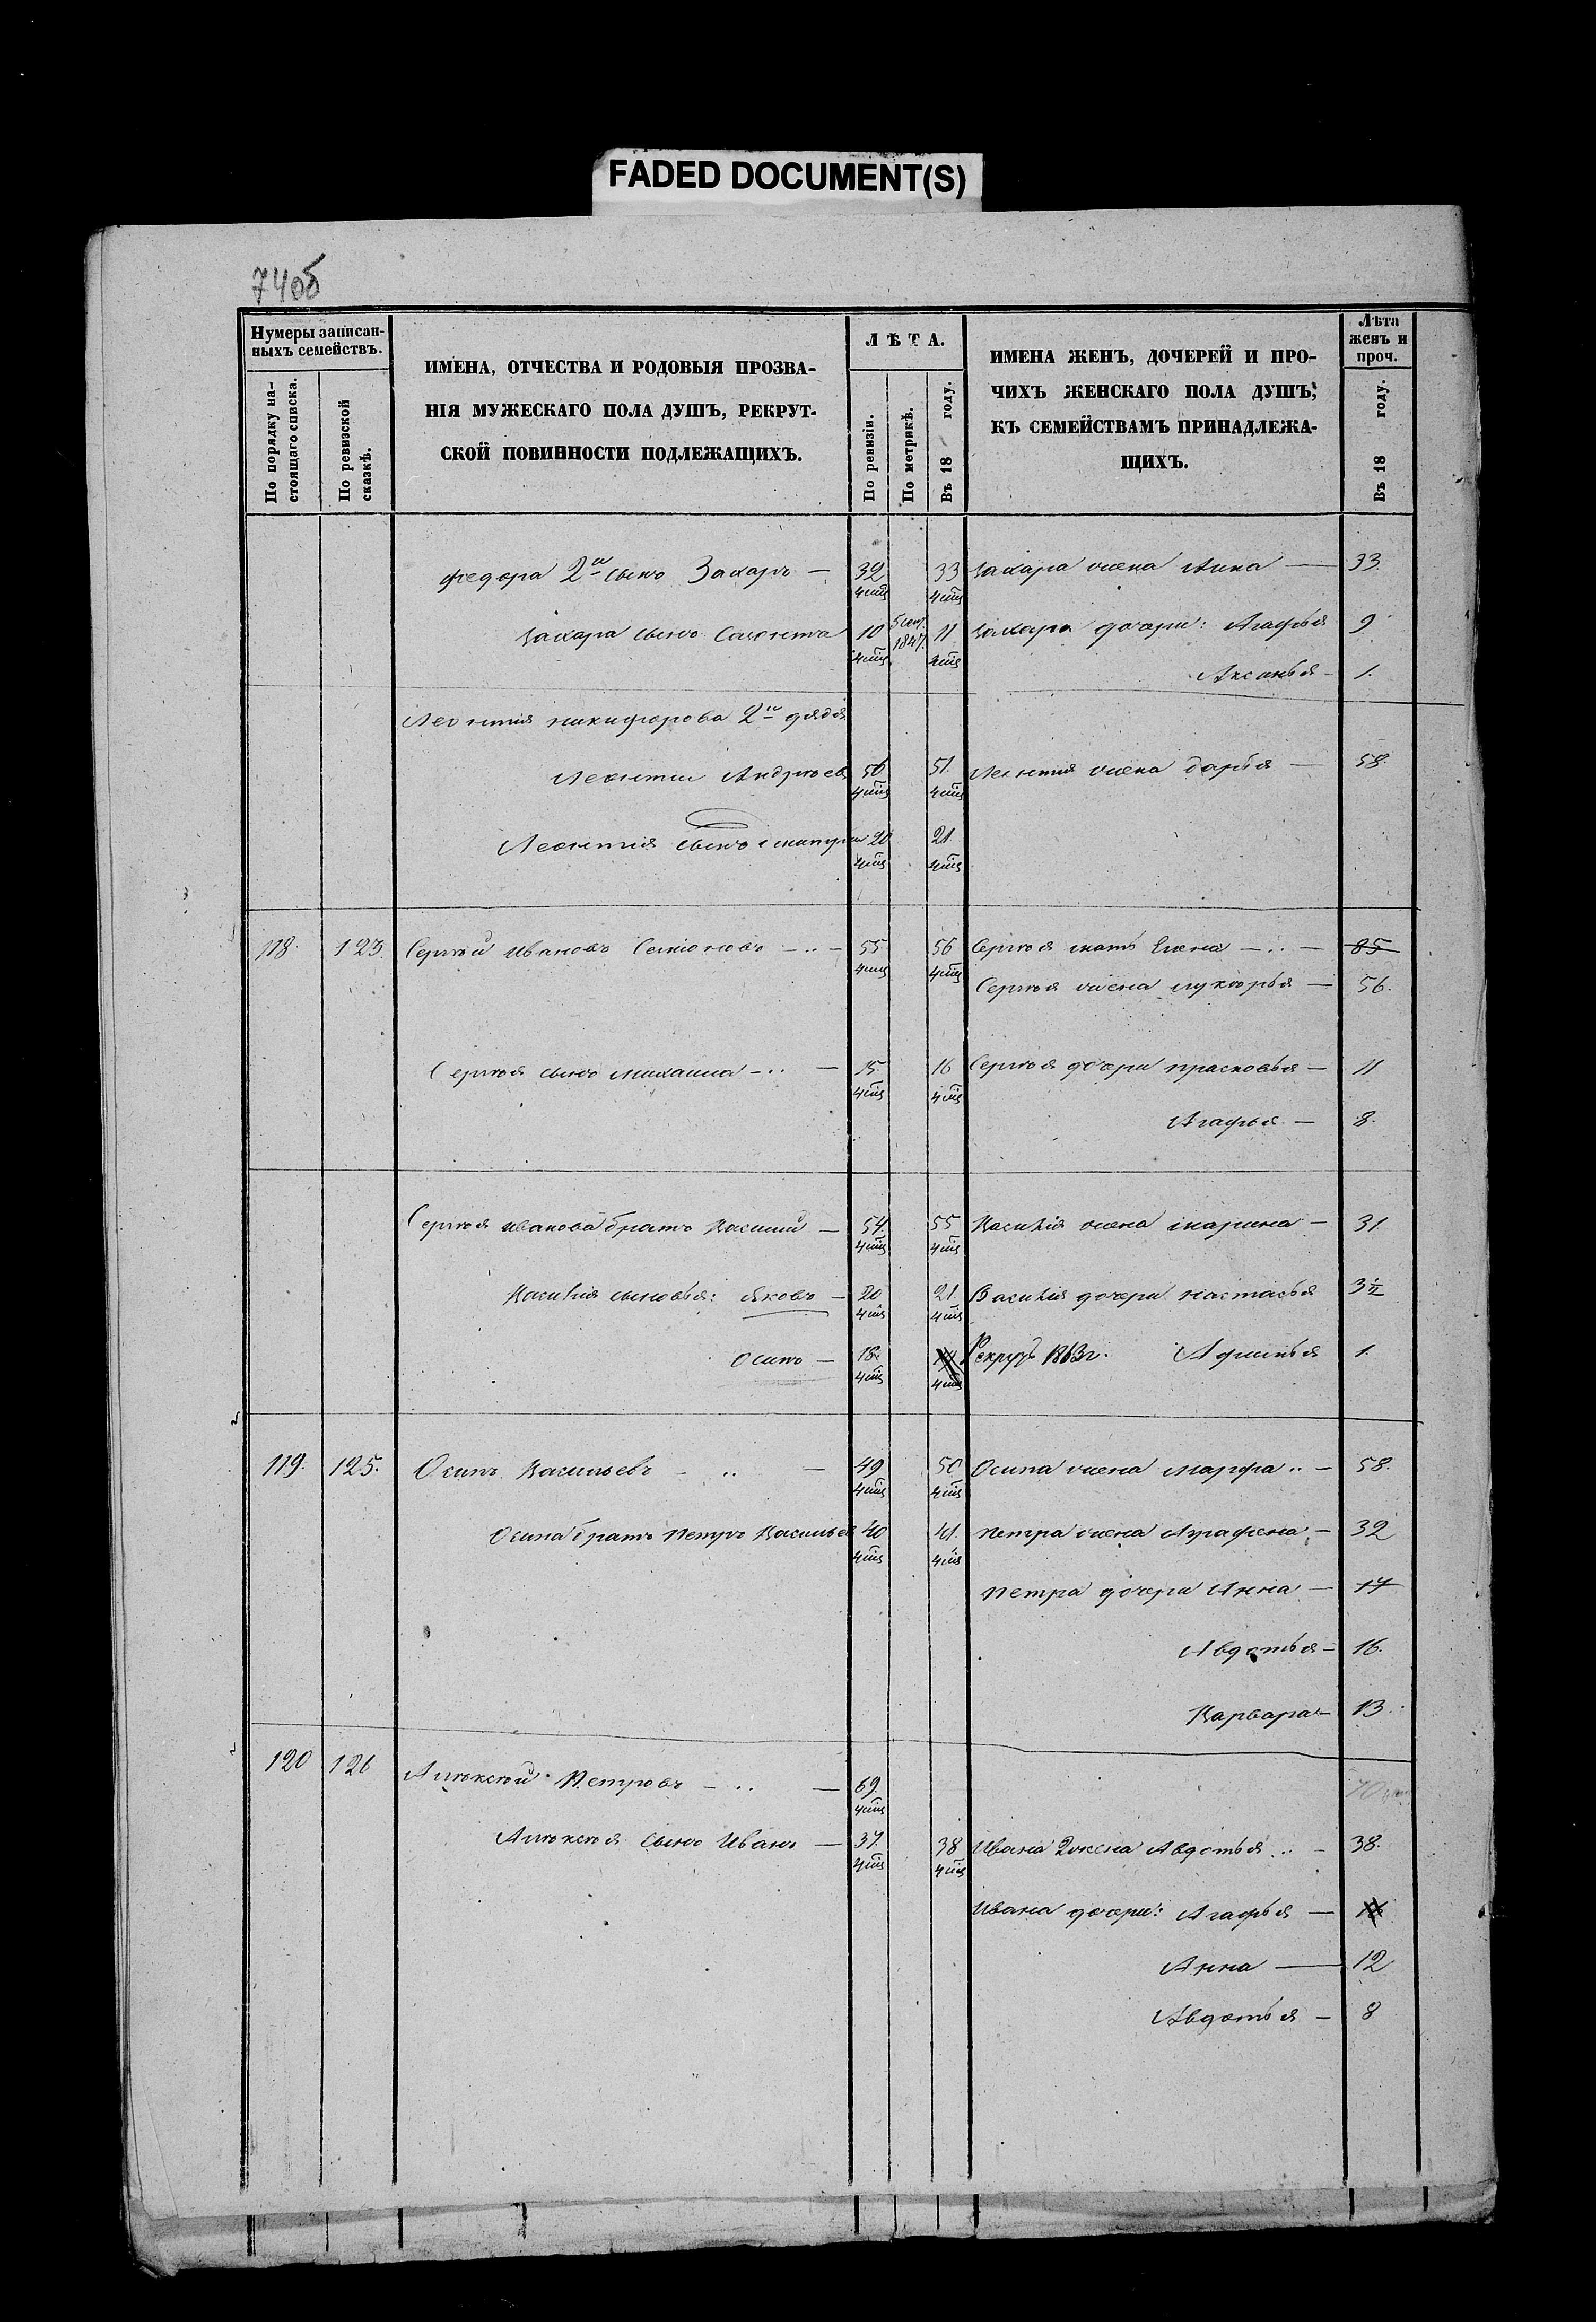 FADED DOCUMENT(S)
74об
Нумеры записан-
ныхъ семействъ.
По порядку на-
стоящаго списка.
По ревизской
сказкѣ.
ИМЕНА, ОТЧЕСТВА И РОДОВЫЯ ПРОЗВА-
НІЯ МУЖЕСКАГО ПОЛА ДУШЪ, РЕКРУТ-
СКОЙ ПОВИННОСТИ ПОДЛЕЖАЩИХЪ.
ЛѢТА.
По ревизіи.
По метрикѣ.
Въ 18 году.
ИМЕНА ЖЕНЪ, ДОЧЕРЕЙ И ПРО-
ЧИХЪ ЖЕНСКАГО ПОЛА ДУШЪ,
КЪ СЕМЕЙСТВАМЪ ПРИНАДЛЕЖА-
ЩИХЪ.
Лѣта
женъ и
проч.
Въ 18 году.
Федора 2й сынъ Захаръ — 32 33 Захара жена Анна — 33
Захара сынъ 10 5 сент. 1847. 11 Захара дочери: Агафья 9
Аксинья — 1.
Леонтія Никифорова 2й дядя
Леонтій Андреевъ 50 51. Леонтія жена Дарья — 58.
Леонтія сынъ Дмитрій 20 21
118. 123. Сергѣй Ивановъ Семеновъ — 55 56 Сергѣя мать Елена — 85
Сергѣя жена Лукерья — 56.
Сергѣя сынъ Михаила — 15 16 Сергѣя дочери Прасковья — 11
Агафья — 8.
Сергѣя Иванова братъ Василий — 54. 55 Василія жена Марина — 31
Василія сыновья: Яковъ — 20 21. Василія дочери Настасья 3½
Осипъ — 18. Рекрутъ 1863 г. Афимья 1.
119. 125. Осипъ Васильевъ — 49 50 Осипа жена Марфа — 58.
Осипа братъ Петръ Васильев 40 41. Петра жена Аграфена — 32
Петра дочери Анна — 17
Авдотья — 16.
Варвара — 13.
120 126 Алексѣй Петровъ — 69. 70
Алексѣя сынъ Иванъ — 37. 38 Ивана 2 жена Авдотья — 38.
Ивана дочери: Агафья —
Анна — 12
Авдотья — 8